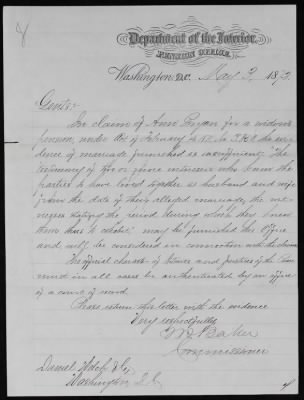 Department of the Interior,
PENSION OFFICE,
Washington, D.C. May 3, 1872
Gents:
In claim of Ann Bryan for a widow's
pension, under Act of February 14 1871, No. the evi-
dence of marriage furnished is insufficient. The
testimony of two or more witnesses who knew the
parties to have lived together as husband and wife
from the date of their alleged marriage, the wit-
nesses stating the period during which they knew
them thus to cohabit, may be furnished this Office
and will be considered in connection with the claim.
The official character of Notaries and Justices of the Peace
must in all cases be authenticated by an officer
of a court of record.
Please return this letter with the evidence
Very respectfully
J. H. Baker
Commissioner
Daniel &Co,
Washington D.C.